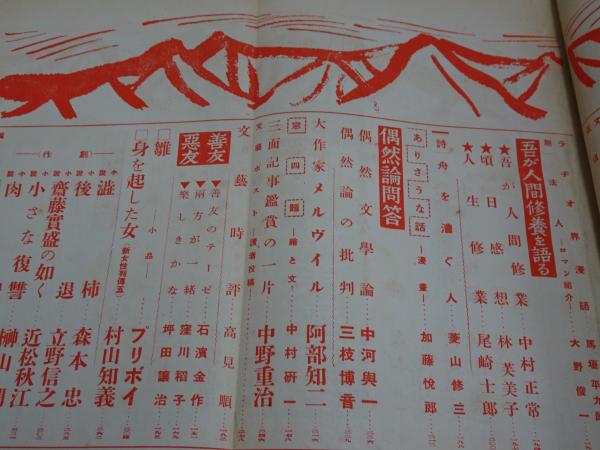 ラヂオ界漫語 馬場平九郎
無法人―ロマン紹介― 大野俊一
吾が人間修養を語る
★吾が人間修業 中村正常
★頃日感想 林芙美子
★人生修業 尾崎士郎
詩舟を漕ぐ人 菱山修三
ありさうな話―漫畫― 加藤悅郎
偶然論問答
偶然文學論 中河與一
偶然論の批判 三枝博音
大作家メルヴイル 阿部知二
窓四題―繪と文― 中村研一
三面記事鑑賞の一片 中野重治
文藝ポスト―讀者投稿―
文藝時評 高見順
善友
惡友
▼善友のテーゼ 石濱金作
▼兩方が一緒 窪川稻子
▼樂しきかな 坪田讓治
雛―小品― プリボイ
身を起した女(新女性列傳五) 村山知義
―(創作)―
小說 澁柿 森本忠
小說 後退 立野信之
小說 齋藤實盛の如く 近松秋江
小說 小さな復讐
小說 肉